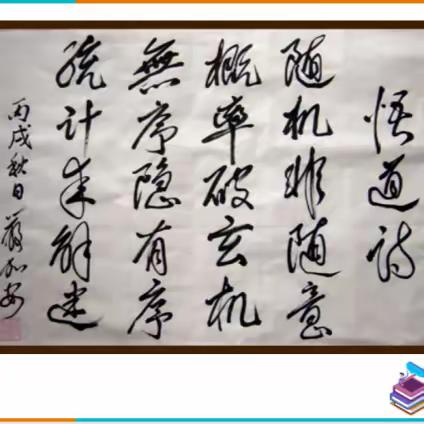 悟道诗
随机非随意
概率破玄机
無序隐有序
统计来解迷
丙戌秋日嚴加安